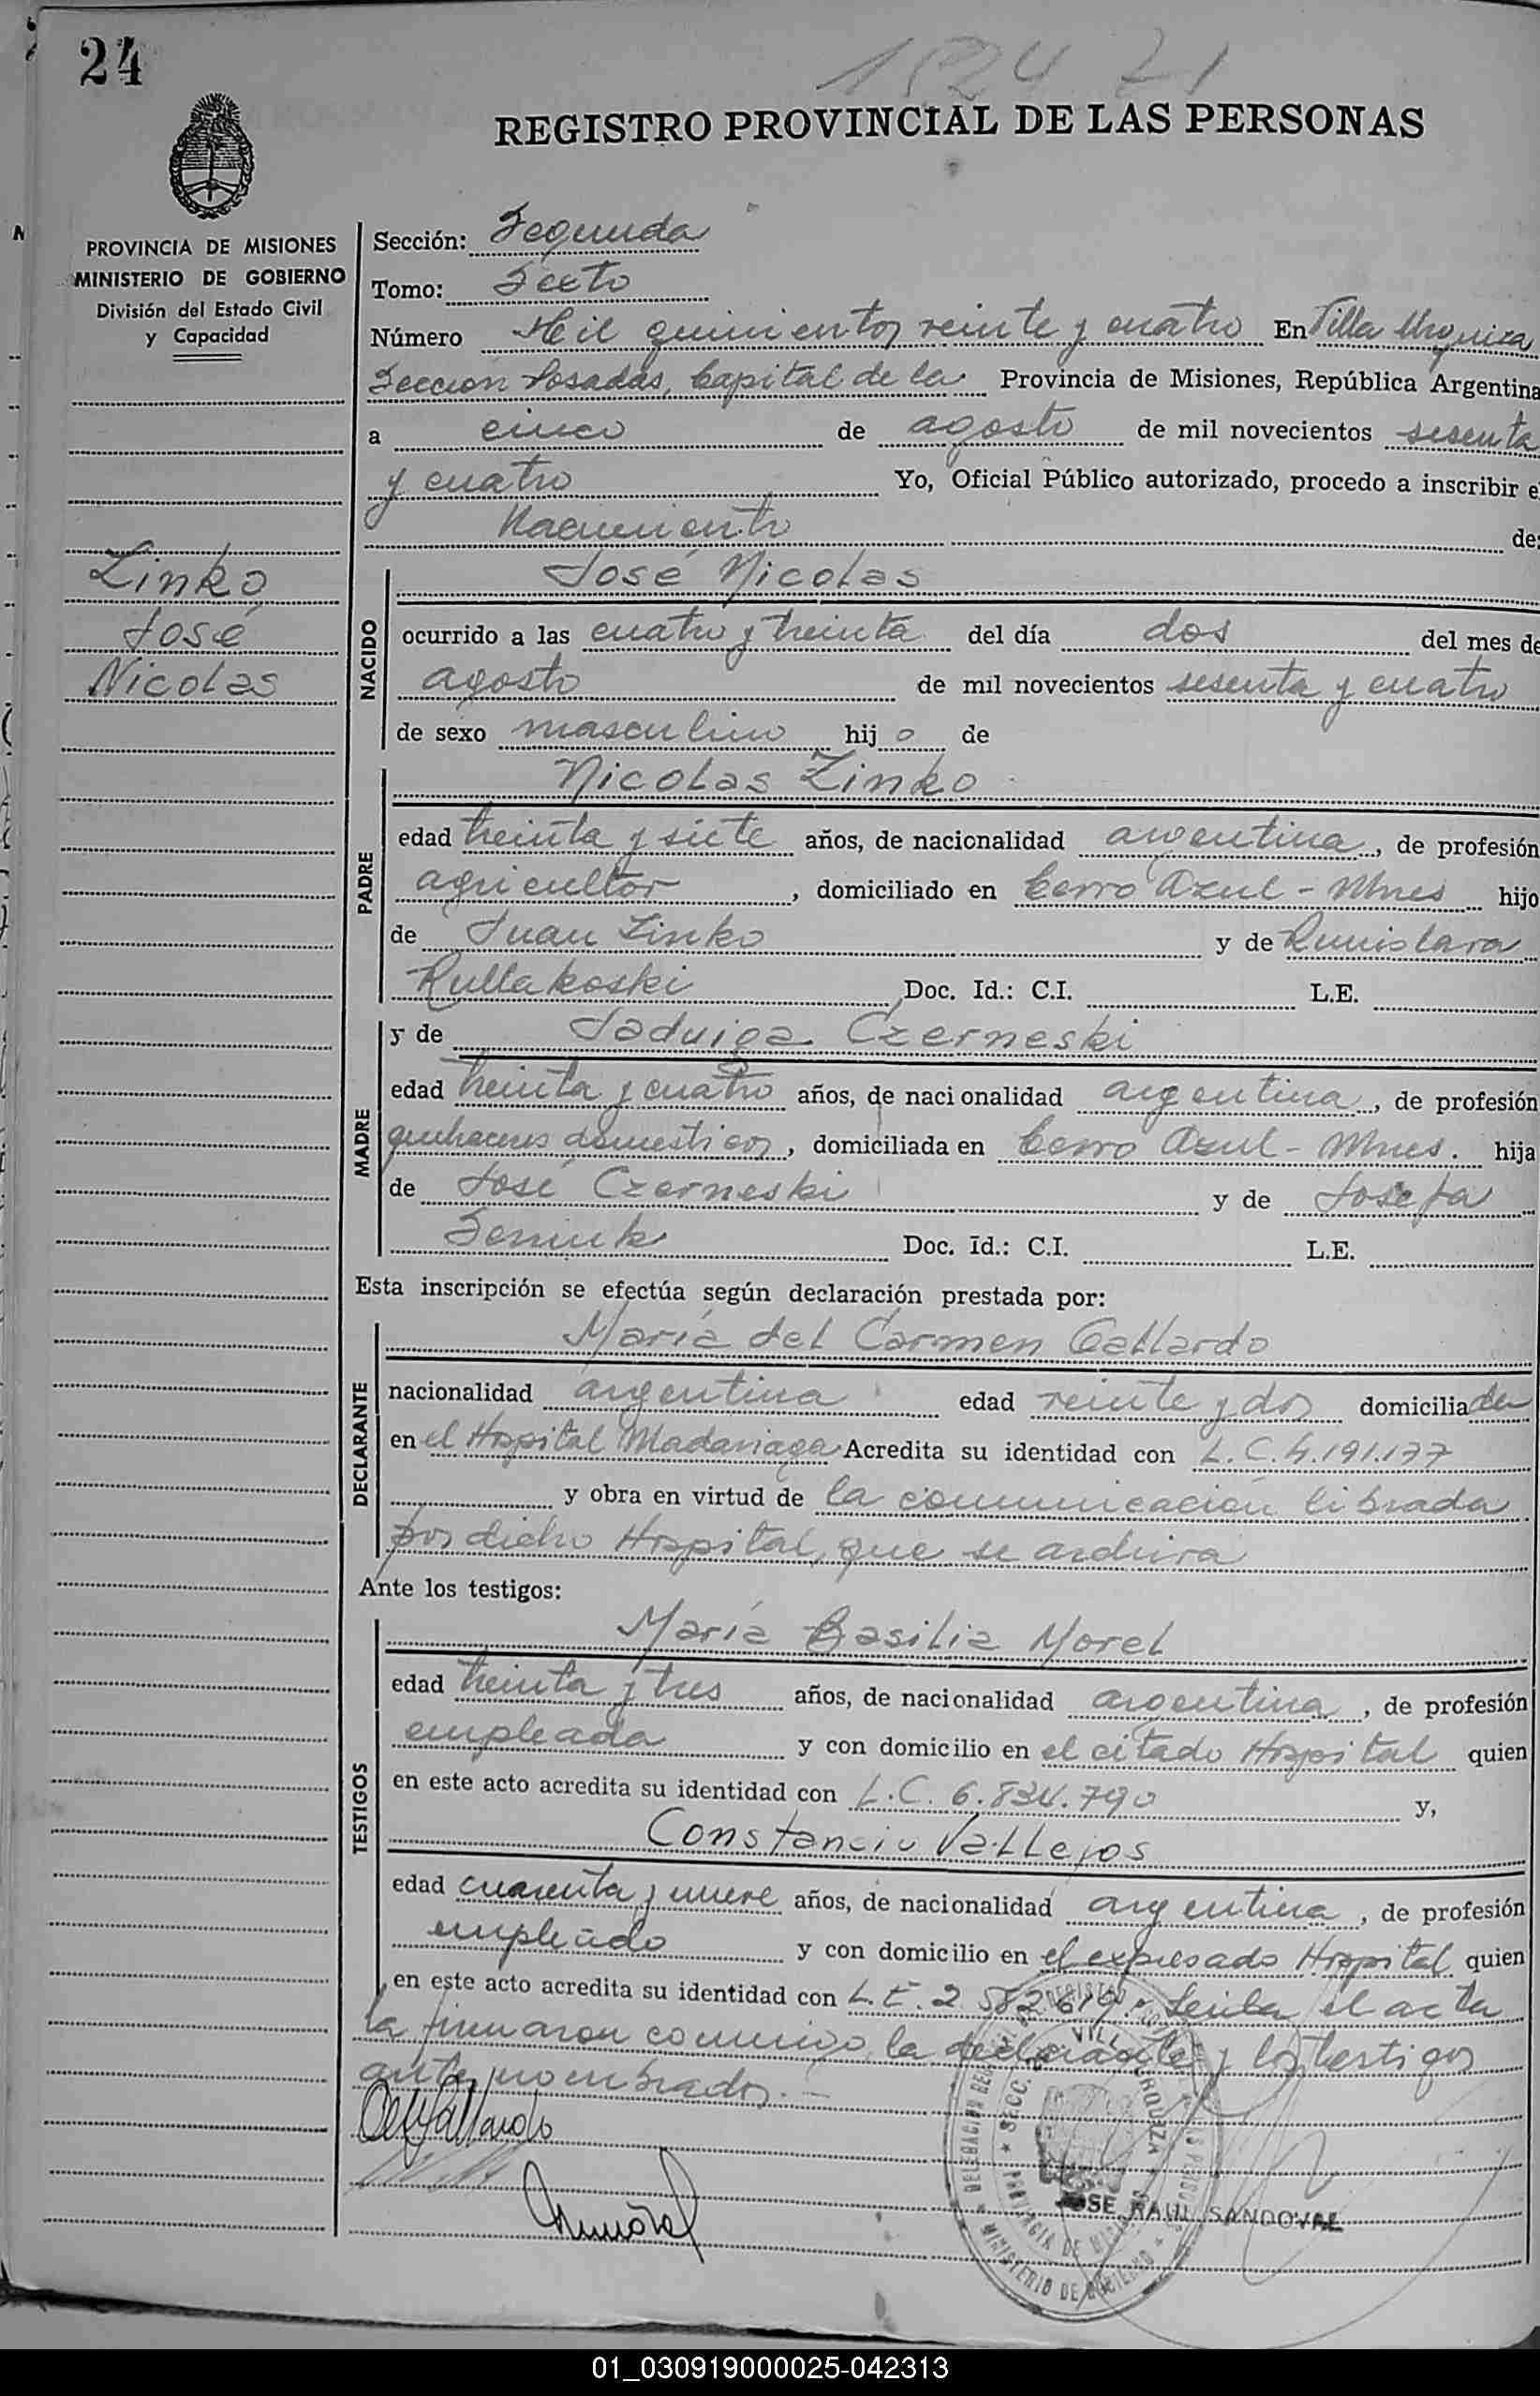 24
REGISTRO PROVINCIAL DE LAS PERSONAS
PROVINCIA DE MISIONES
MINISTERIO DE GOBIERNO
División del Estado Civil
y Capacidad
Zinko
José
Nicolas
Sección: Segunda
Tomo: Sexto
Número Mil quinientos veinte y cuatro En Villa Urquiza
Seccion Posadas, Capital de la Provincia de Misiones, República Argentina
a cinco de agosto de mil novecientos sesenta
y cuatro Yo, Oficial Público autorizado, procedo a inscribir el
Nacimiento de:
NACIDO
José Nicolas
ocurrido a las cuatro y treinta del día dos del mes de
agosto de mil novecientos sesenta y cuatro
de sexo masculino hijo de
PADRE
Nicolas Zinko
edad treinta y siete años, de nacionalidad argentina, de profesión
agricultor, domiciliado en Cerro Azul - Mnes hijo
de Juan Zinko y de
Doc. Id.: C.I. L.E.
MADRE
y de Jaduiga Czerneski
edad treinta y cuatro años, de nacionalidad argentina, de profesión
quehaceres domesticos, domiciliada en Cerro Azul - Mnes. hija
de José Czerneski y de Josefa
Doc. Id.: C.I. L.E.
Esta inscripción se efectúa según declaración prestada por:
DECLARANTE
María del Carmen Gallardo
nacionalidad argentina edad veinte y dos domiciliada
en el Hospital Madariaga Acredita su identidad con L.C. 4.191.177
y obra en virtud de la comunicación librada
por dicho Hospital, que se archiva
Ante los testigos:
TESTIGOS
María Basilia Morel
edad treinta y tres años, de nacionalidad argentina, de profesión
empleada y con domicilio en el citado Hospital quien
en este acto acredita su identidad con L.C. 6.834.790 y,
Constancio Vallejos
edad cuarenta y nueve años, de nacionalidad argentina, de profesión
empleado y con domicilio en el expresado Hospital quien
en este acto acredita su identidad con L.E. 2.582.619. Leida el acta
la firmaron conmigo la declarante y los testigos
ante nombrados.-
JOSE RAUL SANDOVAL
01_030919000025-042313